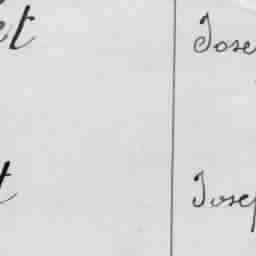 et Jose
t Josep